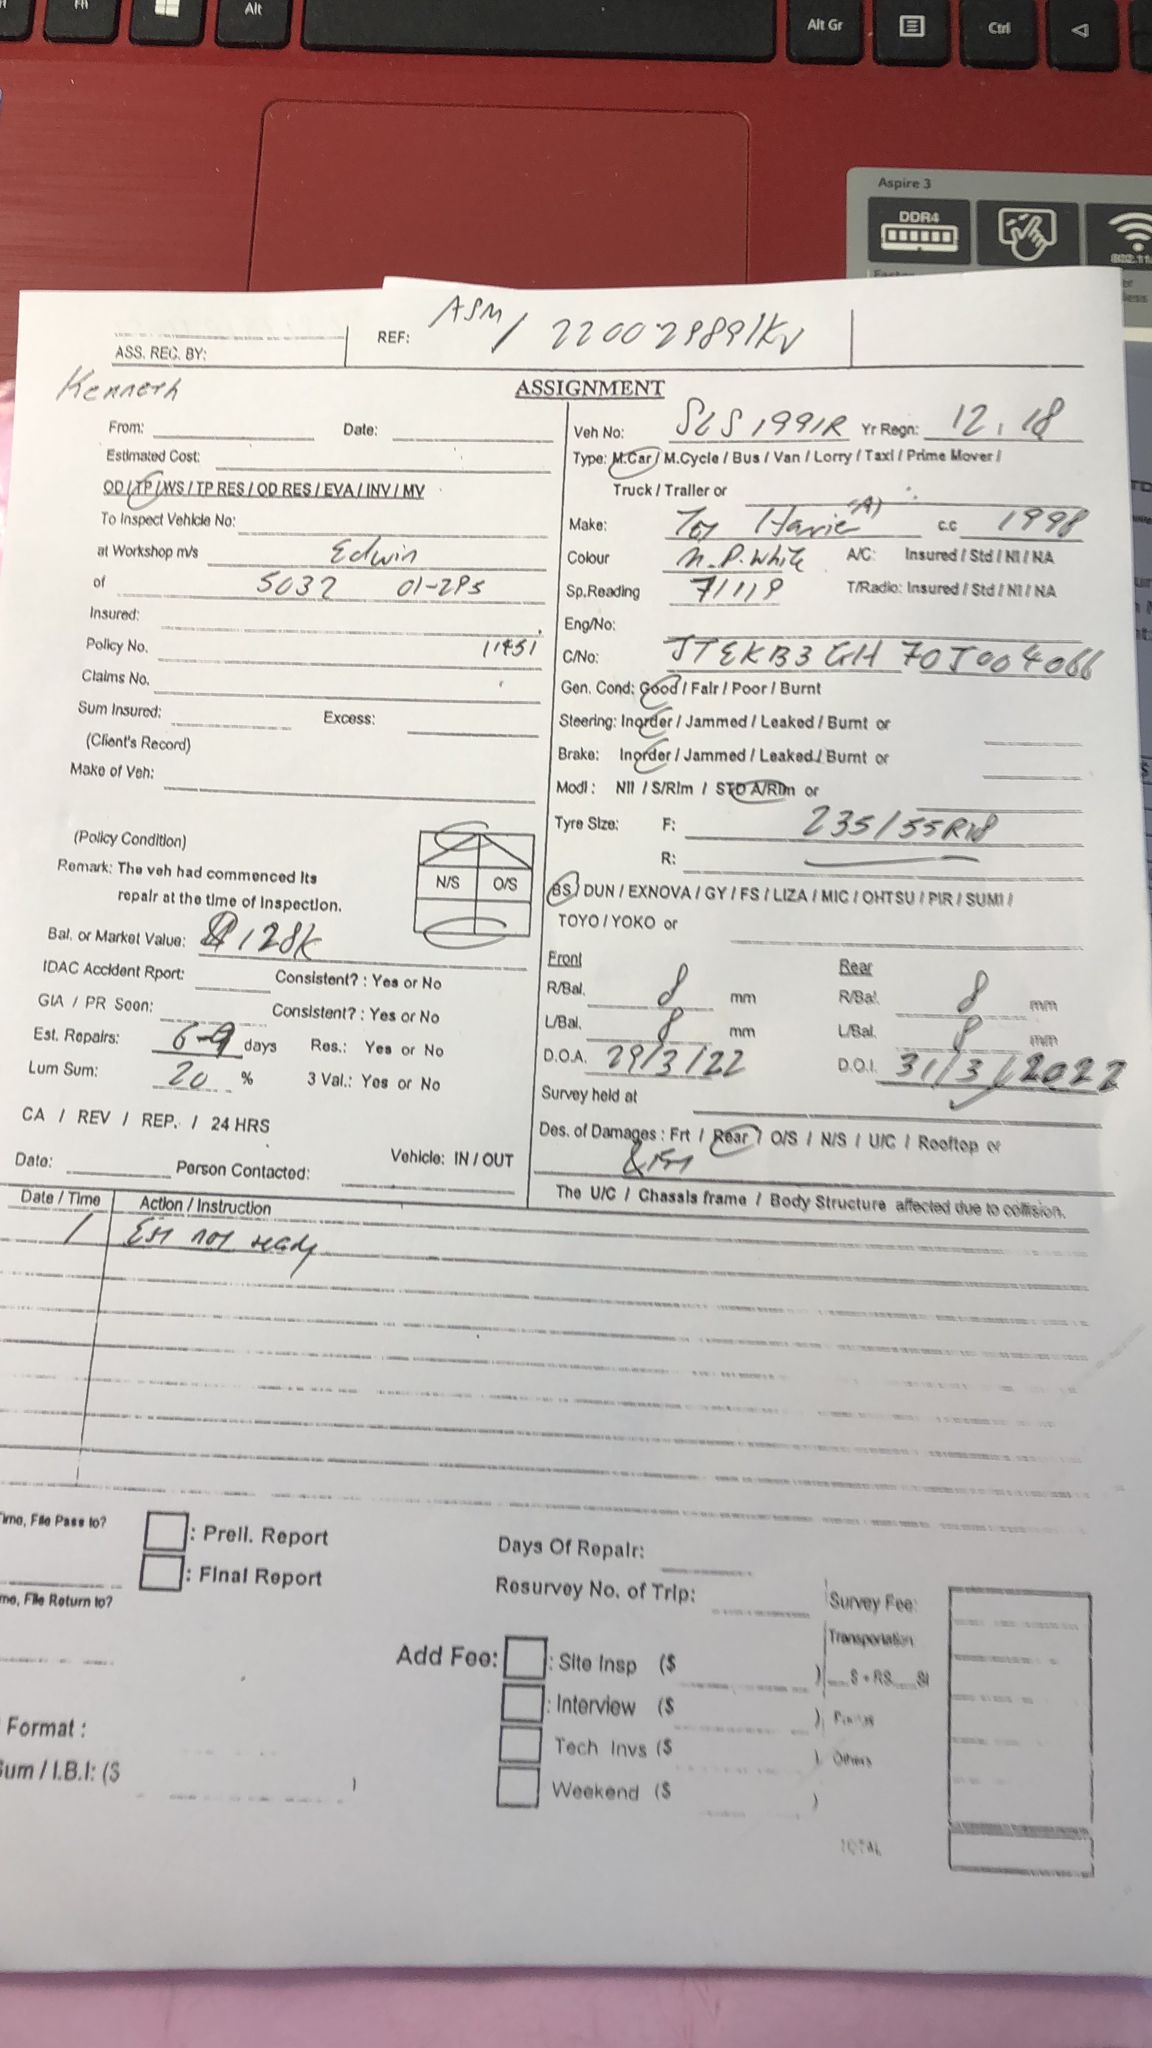 Alt
Alt Gr
Ctrl
Aspire 3
DDR4
802.11
ASS. REC. BY:
REF: ASM/ 22002989/KV
Kenneth
ASSIGNMENT
From:
Date:
Estimated Cost:
OD / TP / WS / TP RES / OD RES / EVA / INV / MV
To Inspect Vehicle No:
at Workshop m/s Edwin
of 5032 01-295
Insured:
Policy No. 11451
Claims No.
Sum Insured:
Excess:
(Client's Record)
Make of Veh:
(Policy Condition)
Remark: The veh had commenced its
repair at the time of inspection.
N/S O/S
Bal. or Market Value: $128K
IDAC Accident Rport: Consistent? : Yes or No
GIA / PR Seen: Consistent? : Yes or No
Est. Repairs: 6-9 days Res.: Yes or No
Lum Sum: 20 % 3 Val.: Yes or No
CA / REV / REP. / 24 HRS
Date: Person Contacted: Vehicle: IN / OUT
Veh No: SLS1991R Yr Regn: 12, 18
Type: M.Car / M.Cycle / Bus / Van / Lorry / Taxi / Prime Mover /
Truck / Trailer or
Make: Toy Harrier (A) c.c 1998
Colour M.P. White A/C: Insured / Std / NI / NA
Sp.Reading 71119 T/Radio: Insured / Std / NI / NA
Eng/No:
C/No:
Gen. Cond: Good / Fair / Poor / Burnt
Steering: Inorder / Jammed / Leaked / Burnt or
Brake: Inorder / Jammed / Leaked / Burnt or
Modi: Nil / S/Rim / STD A/Rim or
Tyre Size: F: 235/55R18
R:
BS / DUN / EXNOVA / GY / FS / LIZA / MIC / OHTSU / PIR / SUMI /
TOYO / YOKO or
Front Rear
R/Bal. 8 mm R/Bal. 8 mm
L/Bal. 8 mm L/Bal. 8 mm
D.O.A. 29/3/22 D.O.I. 31/3/2022
Survey held at
Des. of Damages : Frt / Rear / O/S / N/S / U/C / Rooftop or
The U/C / Chassis frame / Body Structure affected due to collision.
Date / Time Action / Instruction
Est not ready
File Pass to?
: Preli. Report
: Final Report
File Return to?
Days Of Repair:
Resurvey No. of Trip:
Survey Fee:
Transportation
Add Fee: : Site Insp ($ )
: Interview ($ )
Tech Invs ($ )
Others
Weekend ($ )
Format :
Sum / I.B.I: ($ )
TOTAL